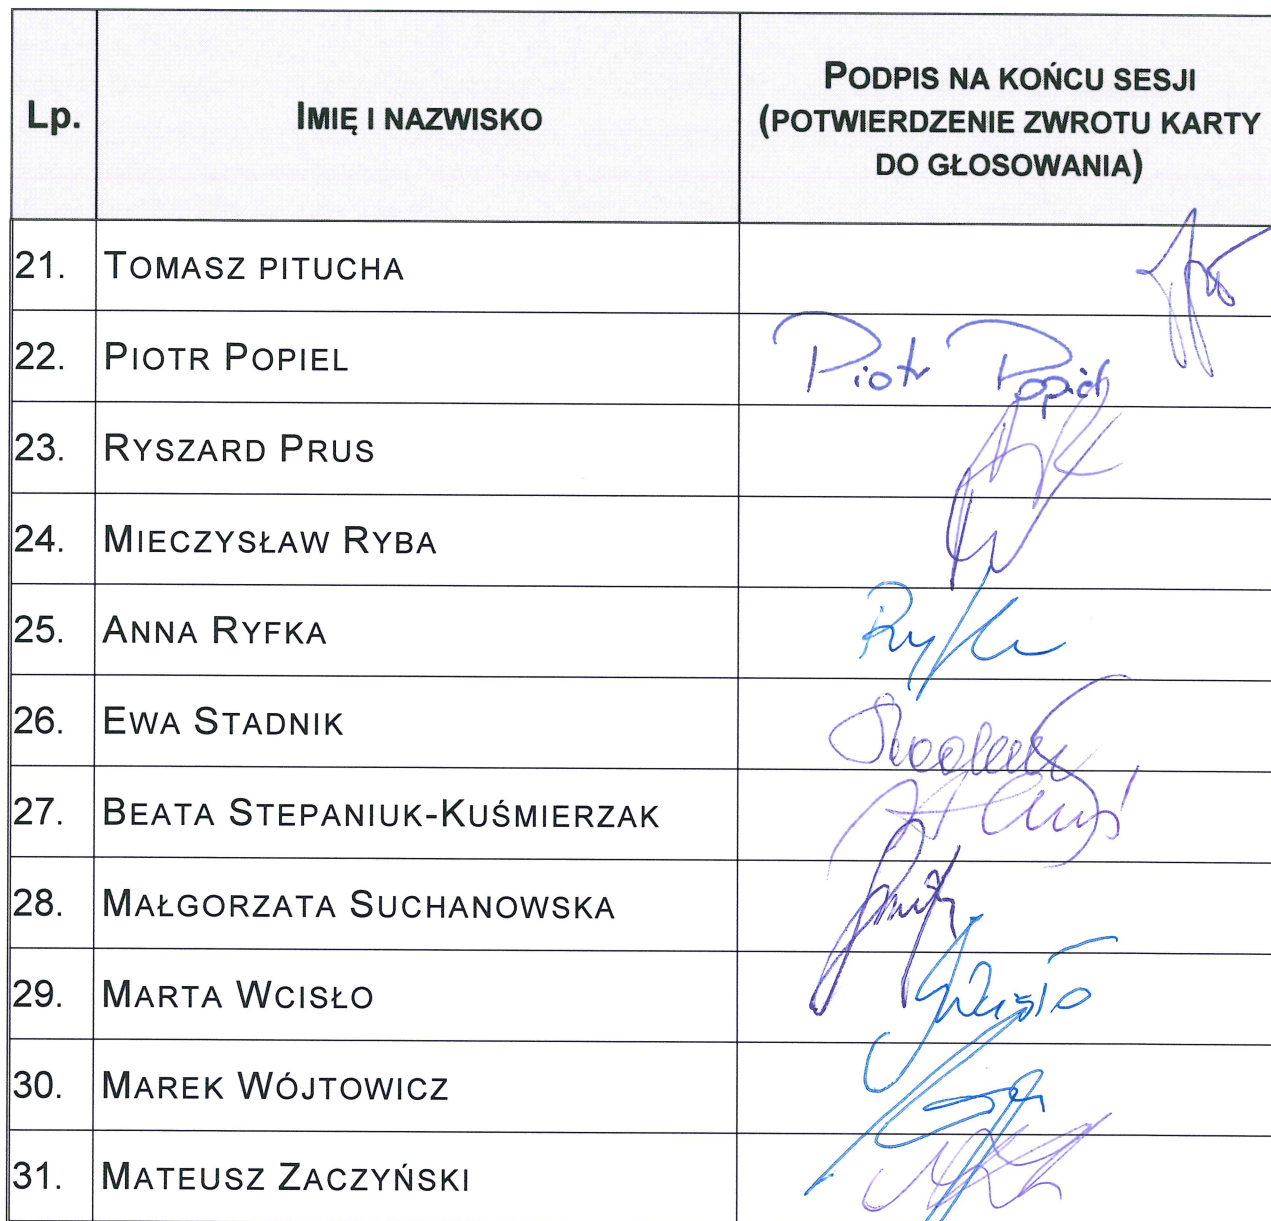 Lp. IMIĘ I NAZWISKO PODPIS NA KOŃCU SESJI
(POTWIERDZENIE ZWROTU KARTY
DO GŁOSOWANIA)
21. TOMASZ PITUCHA
22. PIOTR POPIEL Piotr Popiel
23. RYSZARD PRUS
24. MIECZYSŁAW RYBA
25. ANNA RYFKA
26. EWA STADNIK
27. BEATA STEPANIUK-KUŚMIERZAK
28. MAŁGORZATA SUCHANOWSKA
29. MARTA WCISŁO
30. MAREK WÓJTOWICZ
31. MATEUSZ ZACZYŃSKI